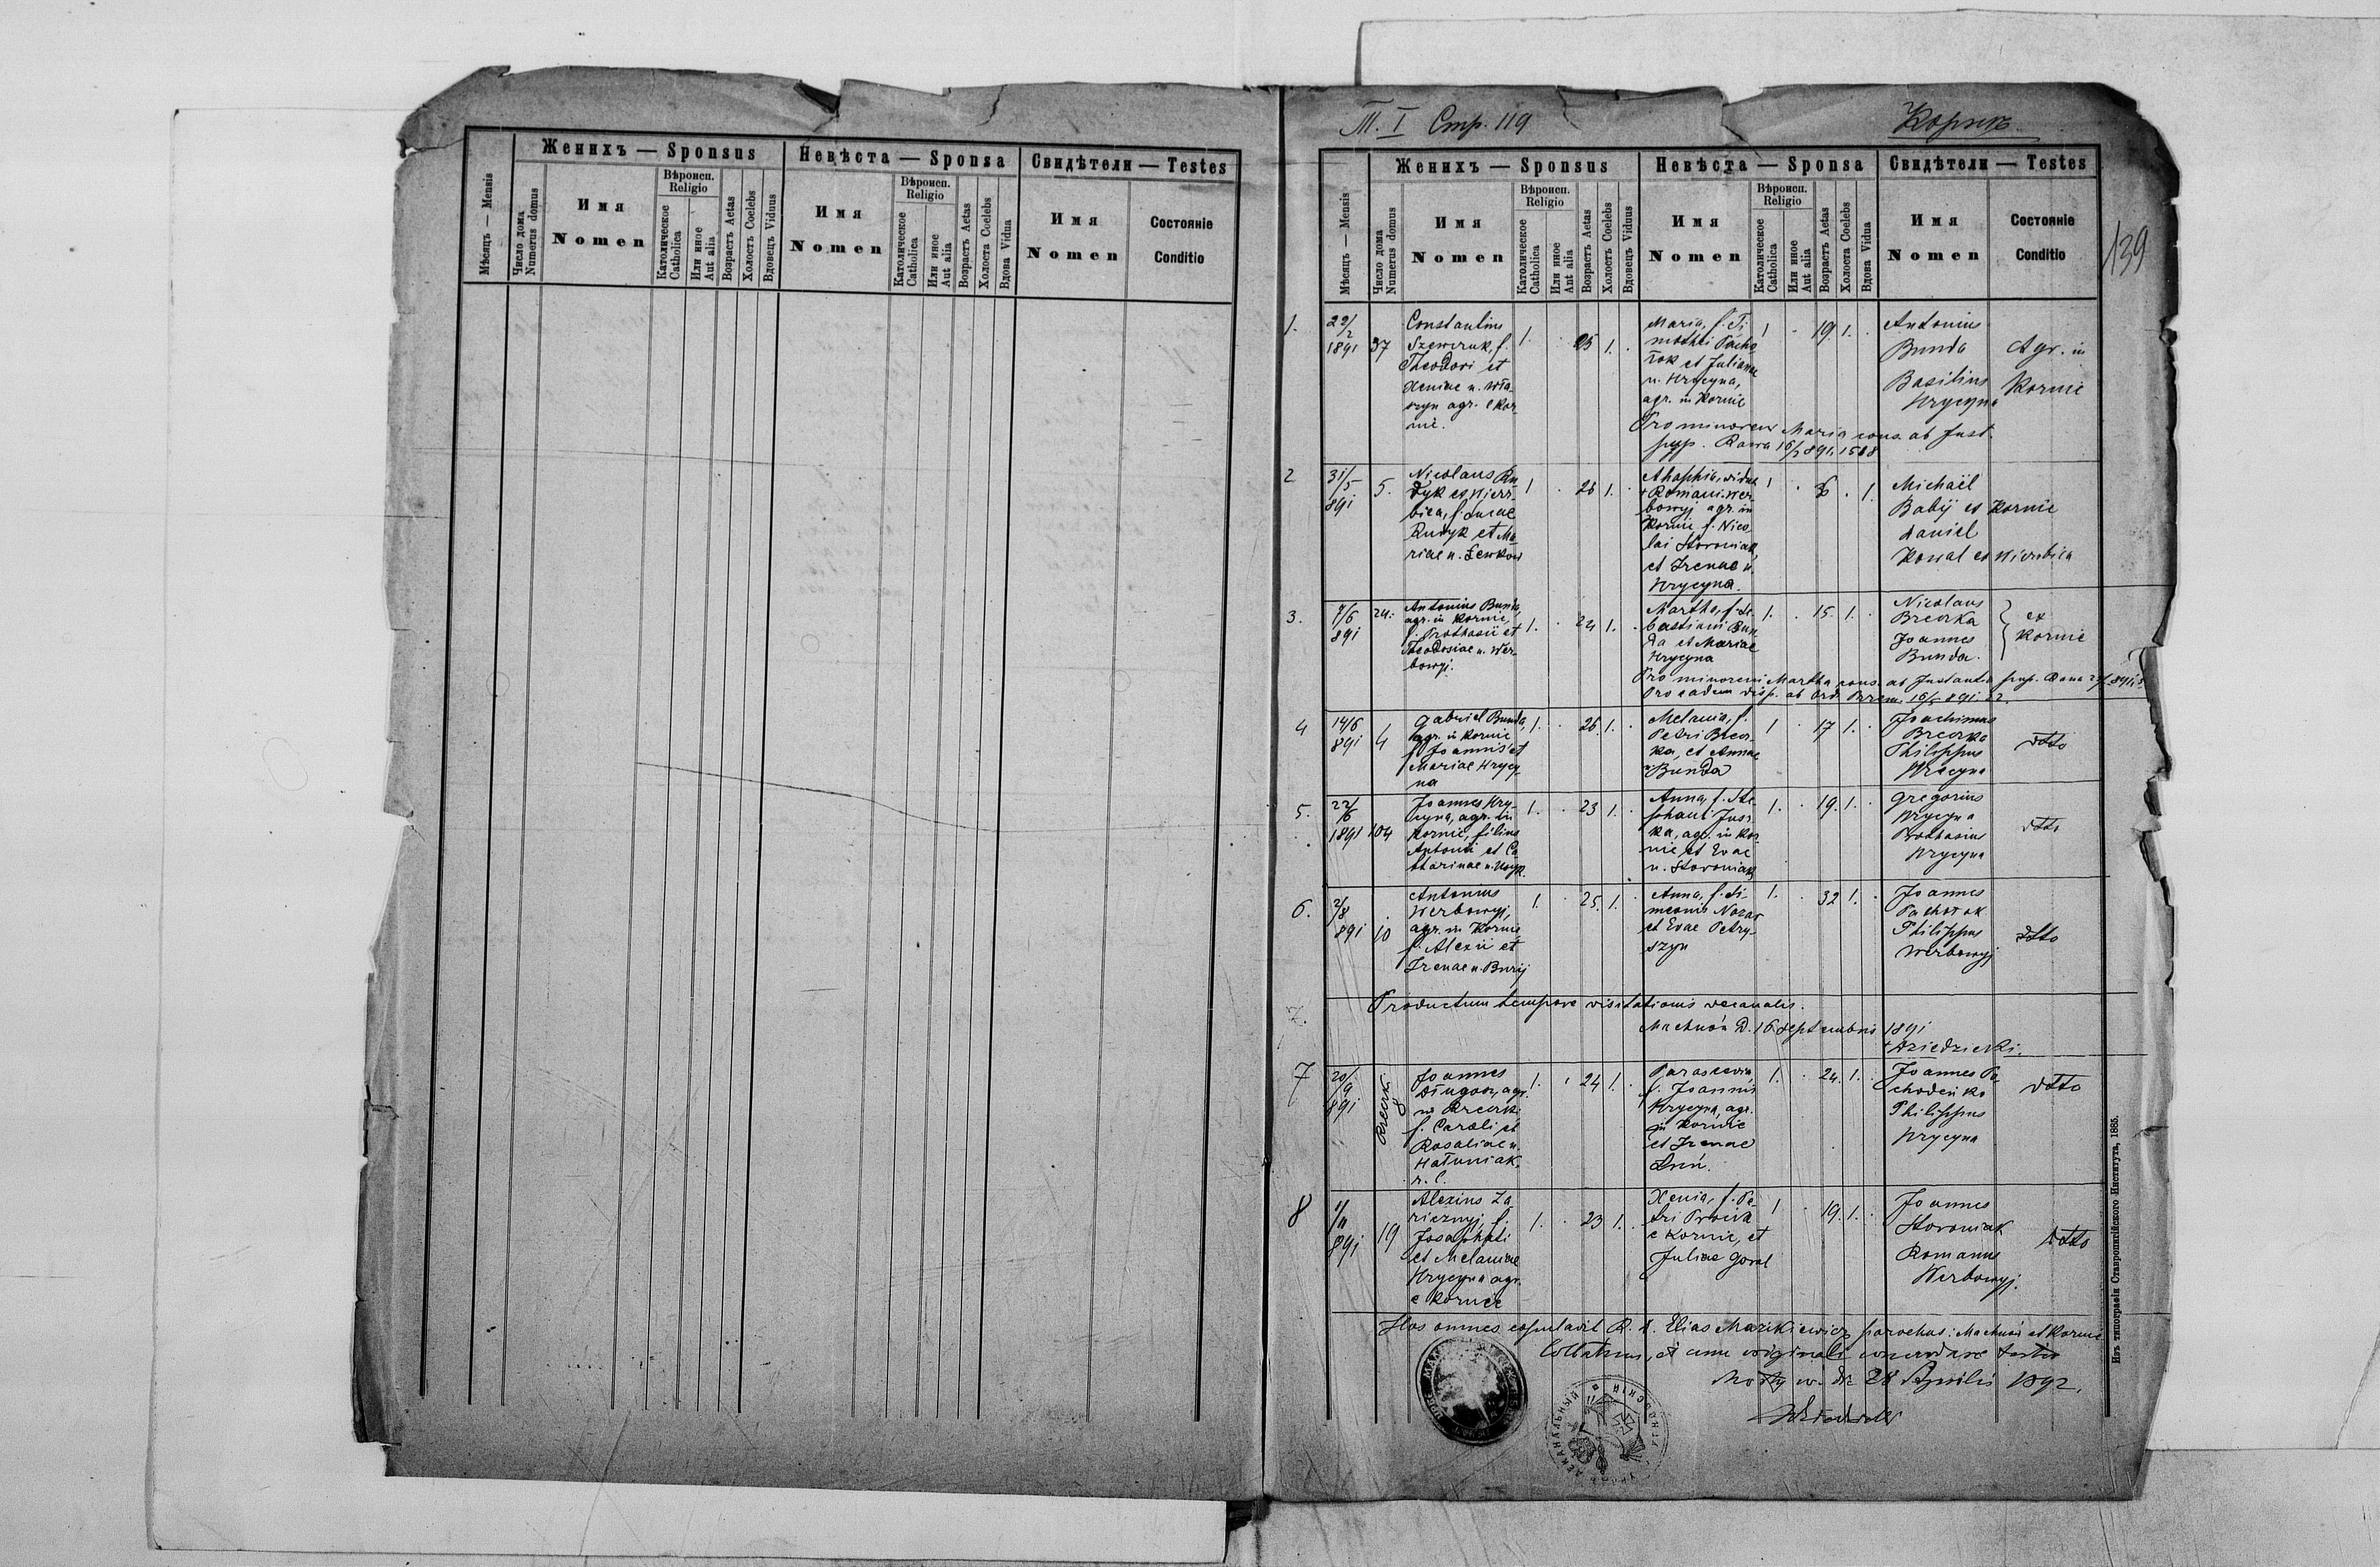 Женихъ — Sponsus
Невѣста — Sponsa
Свидѣтели — Testes
Мѣсяцъ — Mensis
Число дома
Numerus domus
Имя
Nomen
Вѣроисп.
Religio
Католическое
Catholica
Или иное
Aut alia
Возрастъ Aetas
Холостъ Coelebs
Вдовецъ Viduus
Имя
Nomen
Вѣроисп.
Religio
Католическое
Catholica
Или иное
Aut alia
Возрастъ Aetas
Холоста Coelebs
Вдова Vidua
Имя
Nomen
Состояніе
Conditio
Т. I Стр. 119
139
Женихъ — Sponsus
Невѣста — Sponsa
Свидѣтели — Testes
Мѣсяцъ — Mensis
Число дома
Numerus domus
Имя
Nomen
Вѣроисп.
Religio
Католическое
Catholica
Или иное
Aut alia
Возрастъ Aetas
Холостъ Coelebs
Вдовецъ Viduus
Имя
Nomen
Вѣроисп.
Religio
Католическое
Catholica
Или иное
Aut alia
Возрастъ Aetas
Холоста Coelebs
Вдова Vidua
Имя
Nomen
Состояніе
Conditio
1.
1891
37
Constantinus
Szewczuk, f.
Theodori et
agr. e Kor-
nie.
1.
25
1.
Maria, f. Ti-
mothei Pacho-
łok et Julianae
n. Hrycyna,
agr. in Kornie
1
19
1.
Antonius
Bunda
Basilius
Hrycyna
Agr. in
Kornie
Pro minorenni Maria cons. ab Inst.
pup. Rawa
2
31/5
891
5.
Nicolaus Ru-
dyk ex Wierz-
bica, f. Lucae
Rudyk et Ma-
riae n. Lewkow
1
26
1.
Ahaphia, vidua
+ Romani Wer-
bowyj agr. in
Kornie f. Nico-
lai Storoniak,
et Irenae n.
Hrycyna.
1
1.
Michaël
Babij ex Kornie
Daniel
Kowal ex Wierzbica
3.
7/6
891
24.
Antonius Bunda,
agr. in Kornie,
f. Prothasii et
Theodosiae n. Wer-
bowyj.
1.
24
1.
Martha, f. Se-
bastiani Bun-
da et Mariae
Hrycyna
1.
15.
1.
Nicolaus
Brcorka
Joannes
Bunda.
ex
Kornie
Pro minorenni Martha cons. ab Instantia pup. Rawa
Pro eadem disp. ab Ord.
4
14/6
891
4
Gabriel Bunda,
agr. in Kornie
f. Joannis et
Mariae Hrycy-
na
1.
26
1.
Melania, f.
Petri Brcor-
ka, et Annae
Bunda
1
17
1.
Joachimus
Brcorka
Philippus
Hrycyna
dtto
5.
22/6
1891
104
Joannes Hry-
cyna, agr. in
Kornie, filius
Antonii et Ca-
tharinae n.
1.
23
1.
Anna, f. Ste-
phani Jusz-
ka, agr. in Kor-
nie, et Evae
n. Storoniak
1.
19.
1.
Gregorius
Hrycyna
Prothasius
Hrycyna
dtto
6.
2/8
891
10
Antonius
Werbowyj,
agr. in Kornie
f. Alexii et
Irenae n. Burij
1.
25.
1.
Anna, f. Si-
meonis Nazar
et Evae Petry-
szyn
1.
32
1.
Joannes
Pachołok
Philippus
Werbowyj
dtto
Productum tempore visitationis decanalis.
Machnów d. 16 Septembris 1891
Dziedzicki.
7
20/9
891
8
Joannes
Długosz, agr.
f. Caroli et
Rosaliae n.
Hałuniak,
r. l.
1.
24
1.
Parascevia,
f. Joannis
Hrycyna, agr.
in Kornie
et Irenae
1.
24.
1.
Joannes Pa-
chodeńko
Philippus
Hrycyna
dtto
8
1/11
891
19
Alexius Za-
ricznyj, f.
Josaphati
et Melaniae
Hrycyna agr.
e Kornie
1.
23
1.
Xenia, f. Pe-
tri
e Kornie, et
Juliae Goral
1
19.
1.
Joannes
Storoniak
Romanus
Werbowyj.
dtto
Hos omnes copulavit R. D. Elias Mazikiewicz parochus: Machnów et Kornie
Collatum, et cum originali concordare testor
Mosty w. die 28 Aprilis 1892.
Изъ типографіи Ставропигійского Института, 1885.